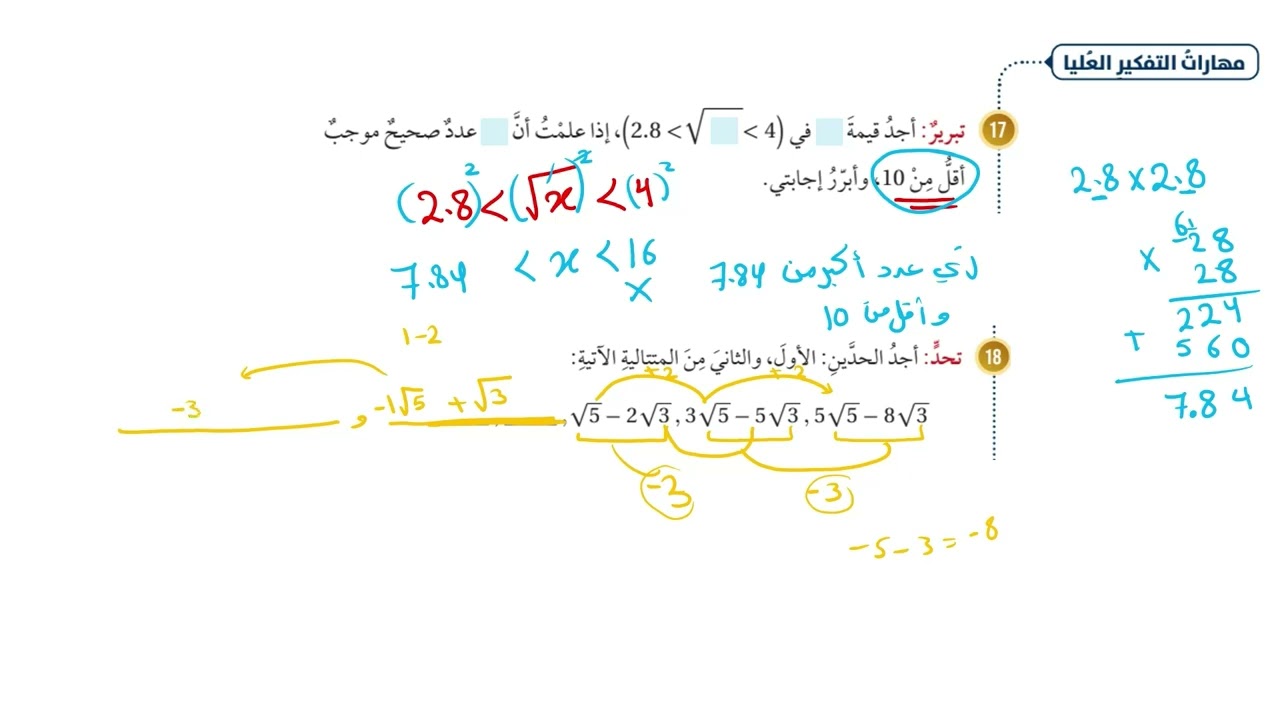 مهاراتُ التفكيرِ العُليا
17 تبريرٌ: أجدُ قيمةَ □ في (2.8 < √□ < 4)، إذا علمْتُ أنَّ □ عددٌ صحيحٌ موجبٌ
أقلُّ مِنْ 10، وأبرّرُ إجابتي.
(2.8)² < (√x)² < (4)²
7.84 < x < 16
x
لأي عدد أكبر من 7.84
و أقل من 10
2.8 x 2.8
6 1
28
x 28
224
+ 560
7.84
18 تحدٍّ: أجدُ الحدَّينِ: الأولَ، والثانيَ مِنَ المتتاليةِ الآتيةِ:
1-2
+2 +2
-3 , -1√5 + √3 , √5 − 2√3 , 3√5 − 5√3 , 5√5 − 8√3
-3 -3
-5-3=-8